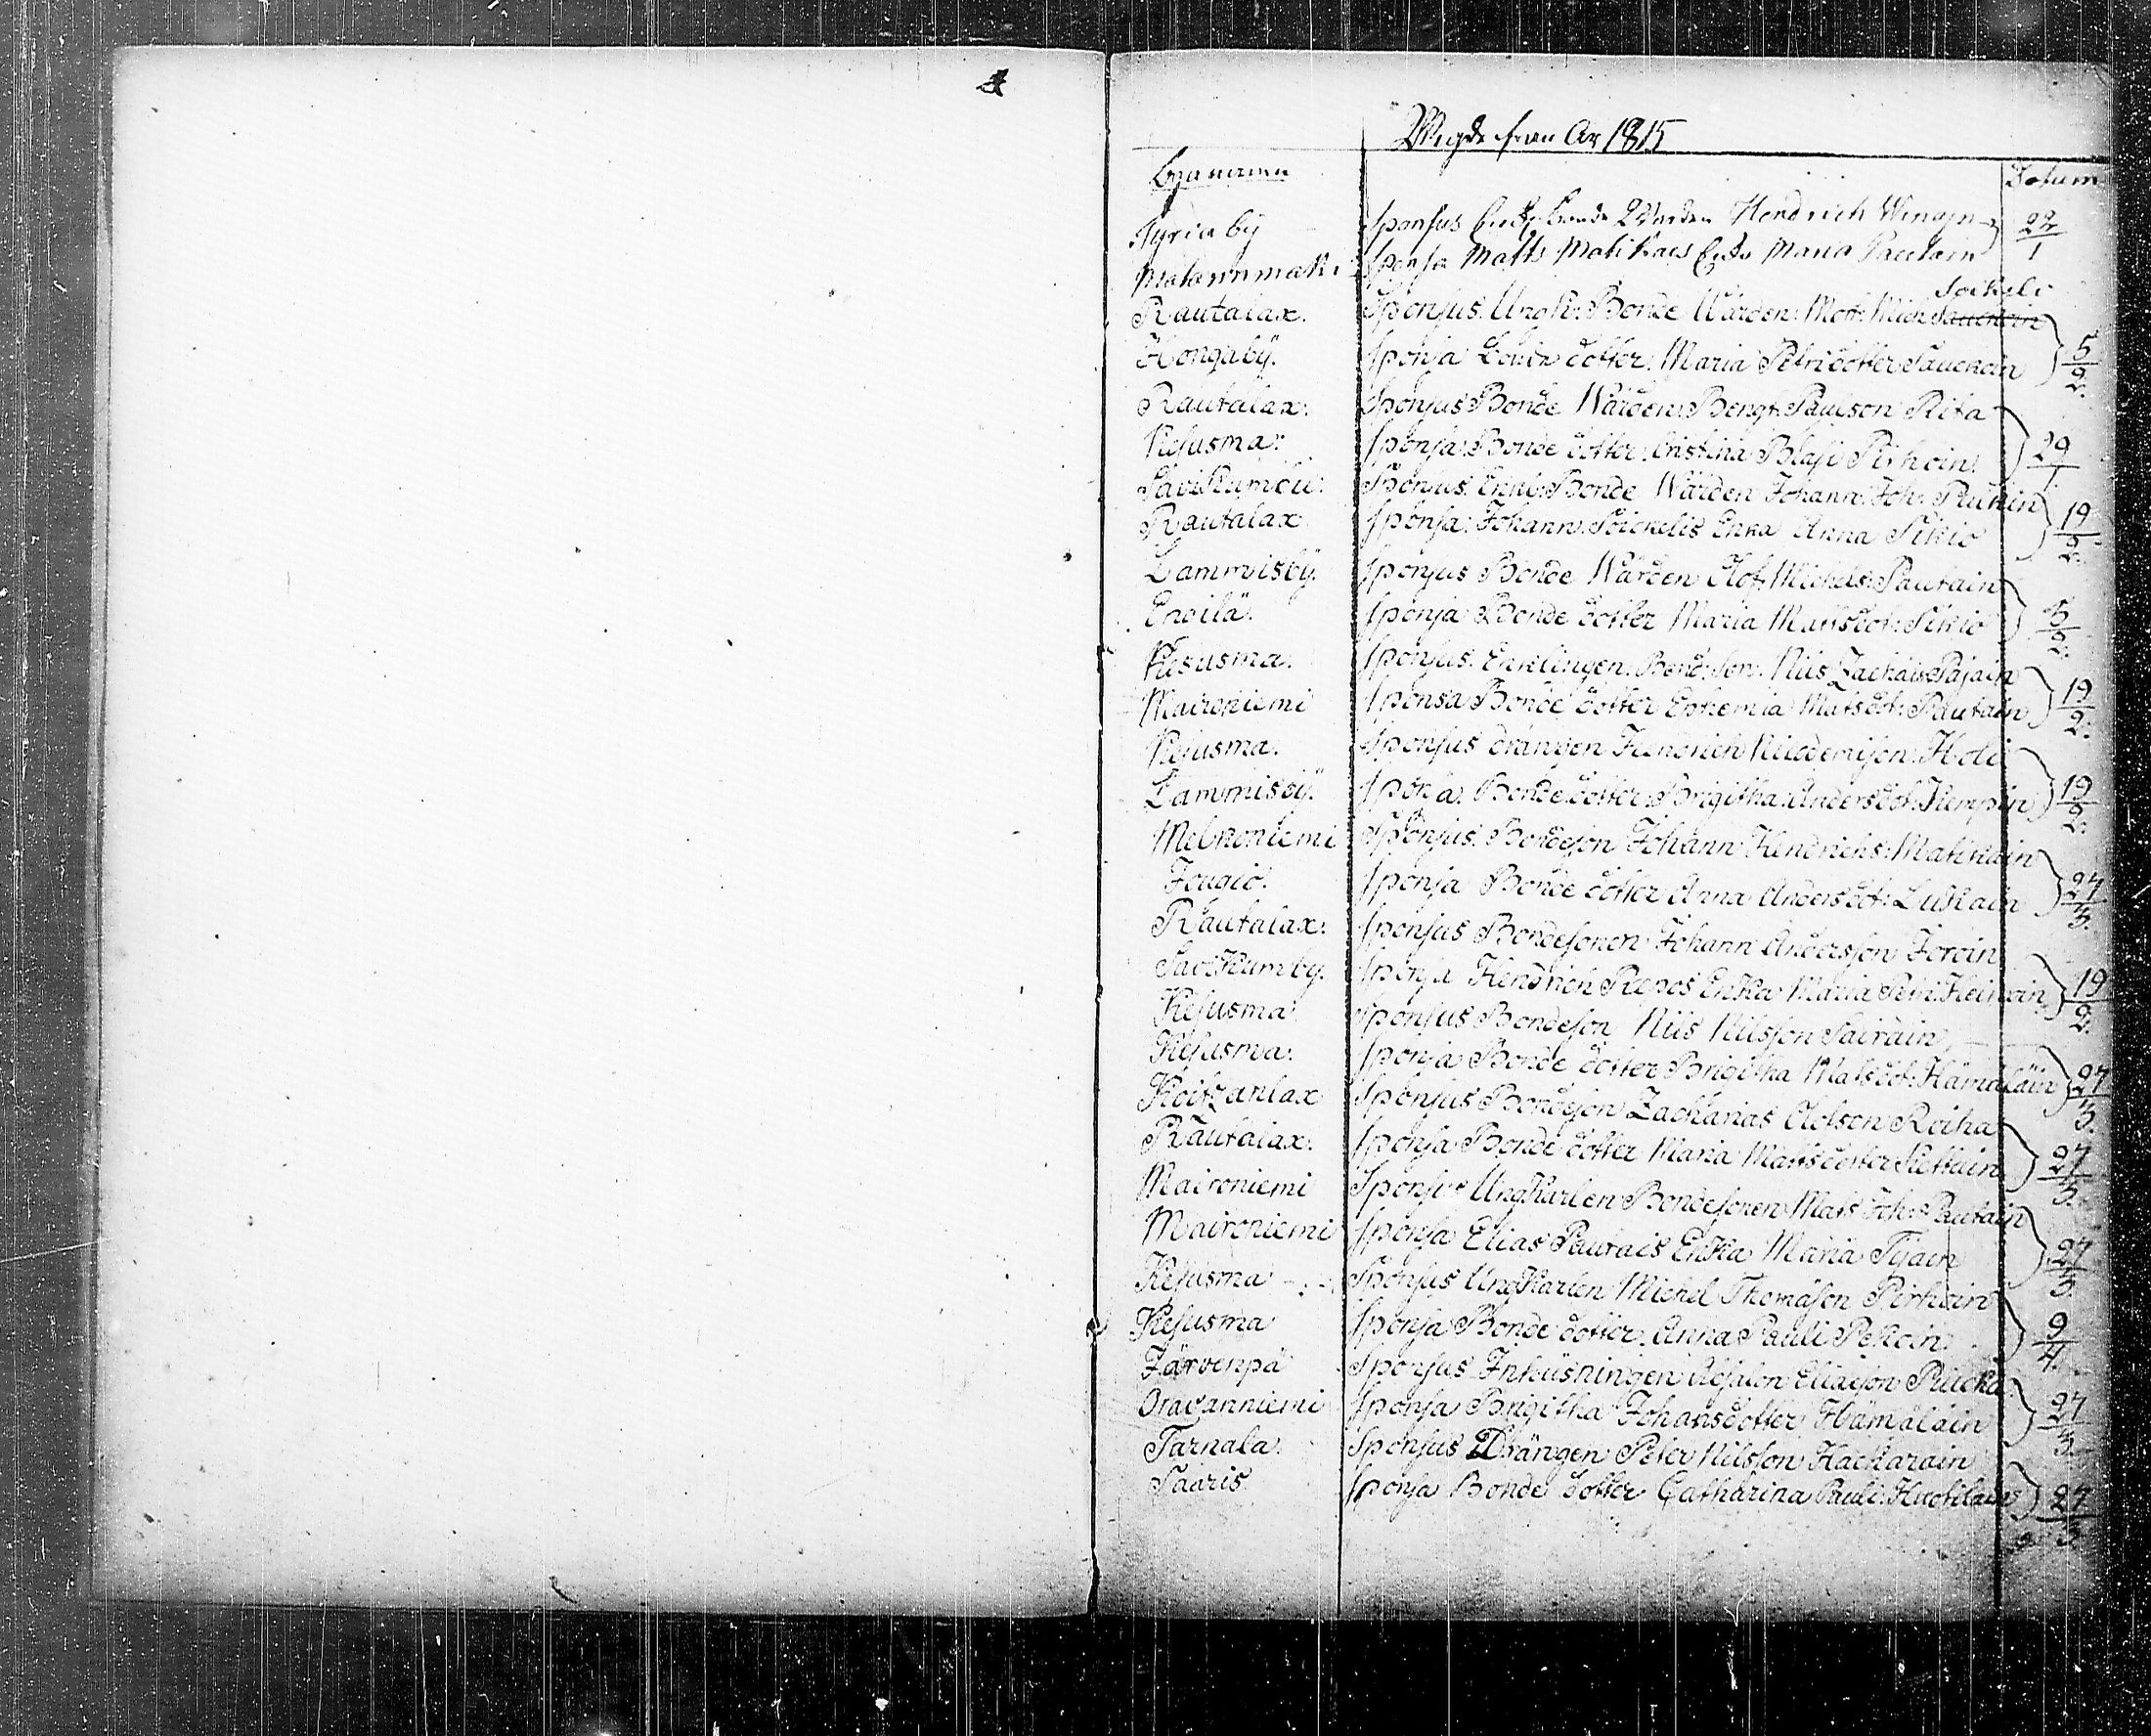 Wigde från År 1815
Datum
Tyria by Sponsus Hendrich 22/1
Sponsa Matts Matikais Maria Pautain
Soikeli
Rautalax. Sponsus. Ungk: Bonde Wärden: Mich:
Kongaby. Sponsa dotter: Maria Petri dotter Sauckoin 5/2.
Rautalax: Sponsus Bonde Wärden: Bengt: Paulson Rita
Kesusma: Sponsa: Bonde dotter: Cristina Blasi Pirhoin. 29/1.
Savikumbu: Sponsus: Enkl: Bonde Wärden Johann: Joh:
Rautalax Sponsa: Johann: Soickelis Enka Anna Sikiö 19/2.
Lammisby. Sponsus Bonde Wärden Olof: Michels: Pautain
Enoilä. Sponsa Bonde dotter Maria Mattsdot: Sikiö 5/2.
Kesusma: Sponsus. Enklingen: Bond: Son: Nils Zachais Pajain
Maironiemi Sponsa Bonde dotter Ephemia Matsdot: Pautain 19/2.
Kesusma. Sponsus drängen Hendrich
Lammisby. Sponsa. Bonde dotter: Brigitha: Andersdot: 19/2.
Sponsus. Bondeson Johann Hendrichs: Matikain
Jougio. Sponsa Bonde dotter Anna Andersdot: Luskain 27/3.
Rautalax: Sponsus Bondesonen Johann Andersson Joroin
Savikumby. Sponsa Hendrich Repos Enka Maria 19/2.
Kesusma Sponsus Bondeson Nils Nilsson Sairain
Kesusma. Sponsa Bonde dotter Brigitha Matsdot: Hämäläin 27/3.
Koitzanlax Sponsus Bondeson Zacharias Olofson Roiha
Rautalax: Sponsa Bonde dotter Maria Mattsdotter 27/3.
Maironiemi Sponsus Ungkarlen Bondesonen Mats Joh: Pautain
Maironiemi Sponsa Elias Pautais Enka Maria Tijain 27/3.
Kesusma Sponsus Ungkarlen Michel Thomason Pirhoin
Kesusma Sponsa Bonde dotter. Anna Pauli Pekoin 9/4.
Järvenpä Sponsus Inhüsningen Absalon Eliasson
Oravanniemi Sponsa Brigitha Johansdotter Hämäläin 27/3.
Tarnala. Sponsus Drängen Peter Nilsson Hackarain
Saaris Sponsa Bonde dotter Catharina Pauli: Huotilain 27/3.